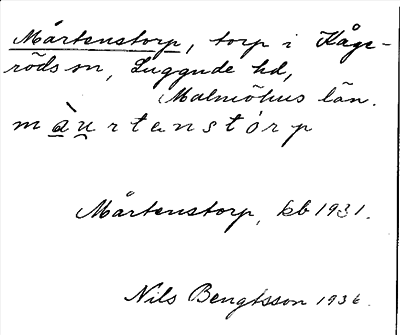 Mårtenstorp, torp i Kåge-
röds sn, Luggude hd,
Malmöhus län.
màu̯rtenstórp
Mårtenstorp, kb 1931.
Nils Bengtsson 1936.